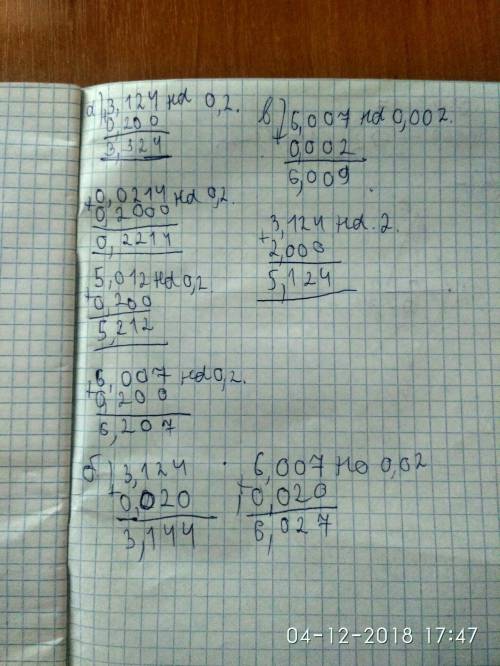 а) 3,124 на 0,2.
+ 0,200
3,324
+ 0,0214 на 0,2.
0,2000
0,2214
5,012 на 0,2.
+ 0,200
5,212
+ 6,007 на 0,2.
0,200
6,207
б) 3,124
+ 0,020
3,144
6,007 на 0,02
+ 0,020
6,027
в) 6,007 на 0,002.
+ 0,002
6,009
3,124 на 2.
+ 2,000
5,124
04-12-2018 17:47